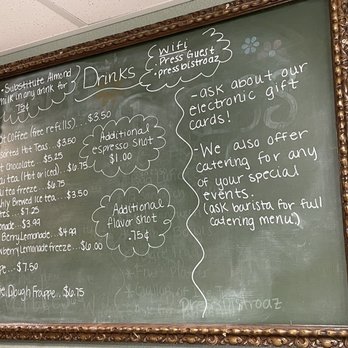 Substitute Almond
milk in any drink for
75¢
Drinks
Wifi
- Press Guest
- pressbistroaz
Coffee (free refills)... $3.50
Hot Teas... $3.50
Chocolate... $5.25
tea (Hot or iced)... $6.75
tea freeze... $6.75
Brewed Ice tea... $3.50
... $7.25
... $3.99
Berry Lemonade... $4.99
Lemonade freeze... $6.00
... $7.50
Dough Frappe... $6.75
Additional
espresso shot
$1.00
Additional
flavor shot
.75¢
-ask about our
electronic gift
cards!
-We also offer
catering for any
of your special
events.
(ask barista for full
catering menu)
pressbistroaz